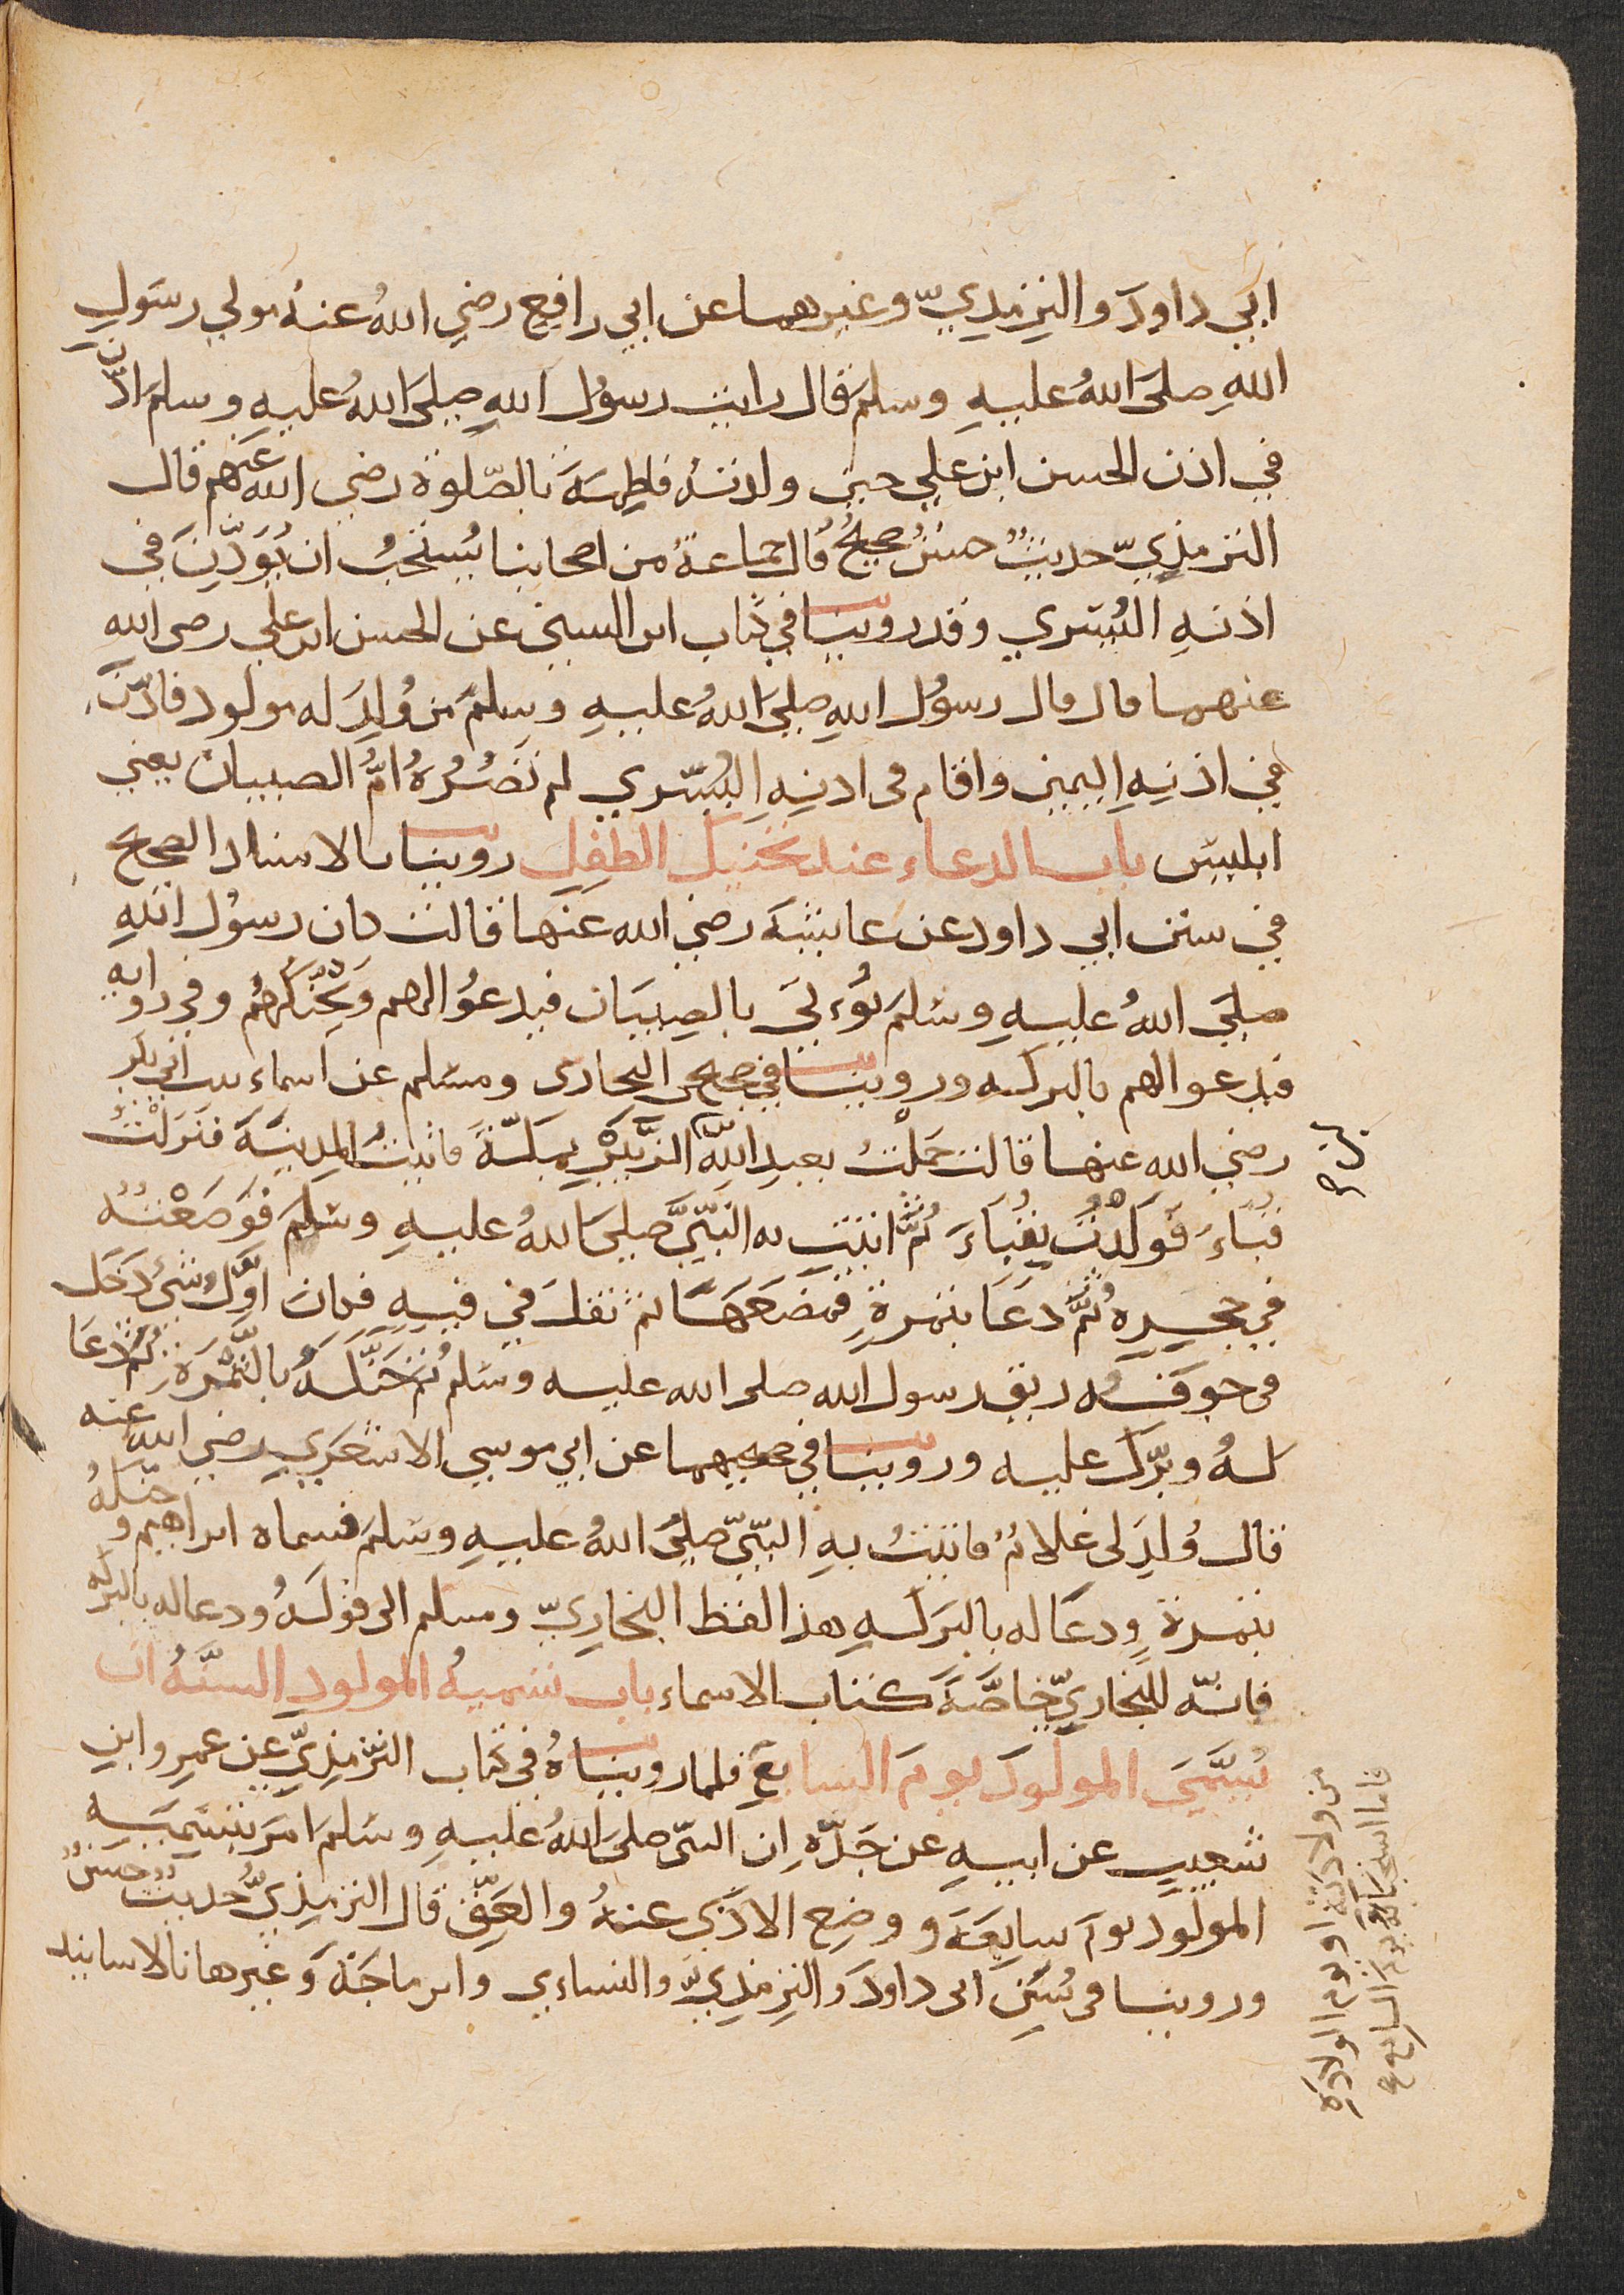 ابي داود والترمذيّ وغيرهما عن ابي رافع رضي اللهُ عنهُ مولي رسَولِ
اللهِ صلى اللهُ عليهِ وسلم قال رايت رسوُل اللهِ صلى اللهُ عليهِ وسلم اذّن
في اذن الحسن ابن علي حين ولدتهُ فاطمة بالصّلوة رضي الله عنهم قال
الترمذيّ حديثٌ حسنٌ صحيحٌ قال جماعةٌ من اصحابنا يُستحبُّ ان يُوَذّن في
اذنهِ اليُسري وقد روينا في كتاب ابن السني عن الحسن ابن علي رضى الله
عنهما قال قال رسوُل اللهِ صلىَ اللهُ عليهِ وسلمَ من وُلِدَ له مولود فاذّنَ
في اذنهِ اليمين واقام فى اذنهِ اليُسري لم تضُرُهُ امُّ الصبيان يعني
ابليس باب الدعاء عند تحنيك الطفل روينا بالاسناد الصحيح
في سنن ابي داود عن عايشة رضي الله عنها قالت كان رسوُل اللهِ
صلىَ اللهُ عليهِ وسلمَ يُوءتىَ بالصِبيَان فيدعوُ الهم ويُحنّكهُم وفي رواية
فيدعوالهم بالبركه وروينا في صحيحى البخارى ومسلم عن اسماء بنت ابي بكر
رضي الله عنها قالت حَملْتُ بعبدِ اللهِ الزُّبَيْرِ بمكّةَ فاتيتُ المدينةَ فنَزلْتُ
قُباءَ فَوَلَدْتُ بقُباءَ ثُمَّ اتيت به النّبيَّ صلىَ اللهُ عليهِ وسَلمَ فَوَضعْتُهُ
في حجره ثُمَّ دَعَا بتمرةٍ فمضغَهَا ثم تفل في فيهِ فكان اوّلُ شيء دَخَل
فى جوفه ريق رسول الله صلى الله عليه وسلم ثم حَنّكهُ بالتَّمْرَة ثُمَّ دعَا
لهُ وبرّك عليه وروينا في صحيحيهما عن ابي موسي الاشعَري رضي الله عنه
قال وُلِدَ لى غلامٌ فاتيتُ بهِ النّبيّ صلىَ اللهُ عليهِ وسَلمَ فسماه ابراهيم وحنّكهُ
بتمرةٍ ودعَا له بالبَركهِ هذا لفظ البخاريّ ومسلم الى قولهُ ودعاله بالبركه
فانّه للبخاريّ خاصَّةَ كتاب الاسماء باب تسَميهُ المولود السنَّهُ ان
يُسمَّيَ المولود يومَ السابع فلما رويناهُ في كتاب الترمذيّ عن عمرو ابن
شعيب عن ابيهِ عن جَدّهِ ان النبّى صلىَ اللهُ عليهِ وسَلمَ امَر بتسَميهِ
المولود يومَ سابعَه ووضع الاذَي عنهُ والعقّ قال الترمذيُّ حديث حسَنٌ
وروينا فى سُنَنِ ابى داودَ والترمذيّ والنساءي وابن ماجَهَ وغيرها بالاسانيد
بن صح
من ولادته او يوم الولادة
فاما استحبابه يوم السابع